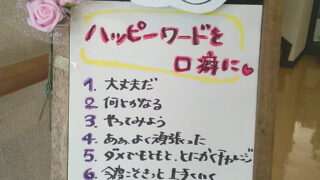 ハッピーワードを
口癖に
1. 大丈夫だ
2. 何とかなる
3. やってみよう
4. あぁ、よく頑張った
5. ダメでもともと、とにかくチャレンジ
6. 今度こそきっと上手くいく